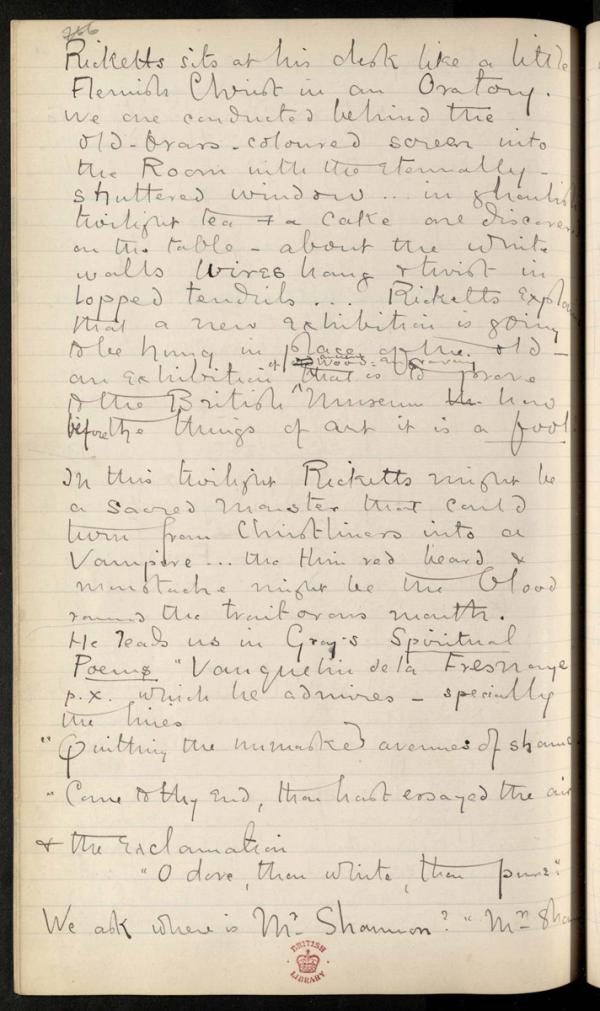 246
Ricketts sits at his desk like a little
Flemish Christ in an Oratory.
We are conducted behind the
old-brass-coloured screen into
the Room with the eternally-
shuttered window ... in ghoulis
twilight tea & a cake are discover
on the table - about the white
walls wires hang & twist in
lopped tendrils ... Ricketts explai
that a new exhibition is going
to be hung in place of the old -
an exhibition of wood-engraving that is to prove
to the British Museum how
before the things of art it is a fool.
In this twilight Ricketts might be
a sacred monster that could
turn from Christliness into a
Vampire ... the thin red beard &
moustache might be the blood
round the traitorous mouth.
He reads us in Gray's Spiritual
Poems "Vauquelin de la Fresnaye
p.x. which he admires - specially
the lines
"Quitting the unmasked avenues of shame
"Come to thy end, thou hast essayed the air
& the Exclamation
"O dove, thou white, thou pure"
We ask where is Mr Shannon? "Mr Sha
BRITISH
LIBRARY